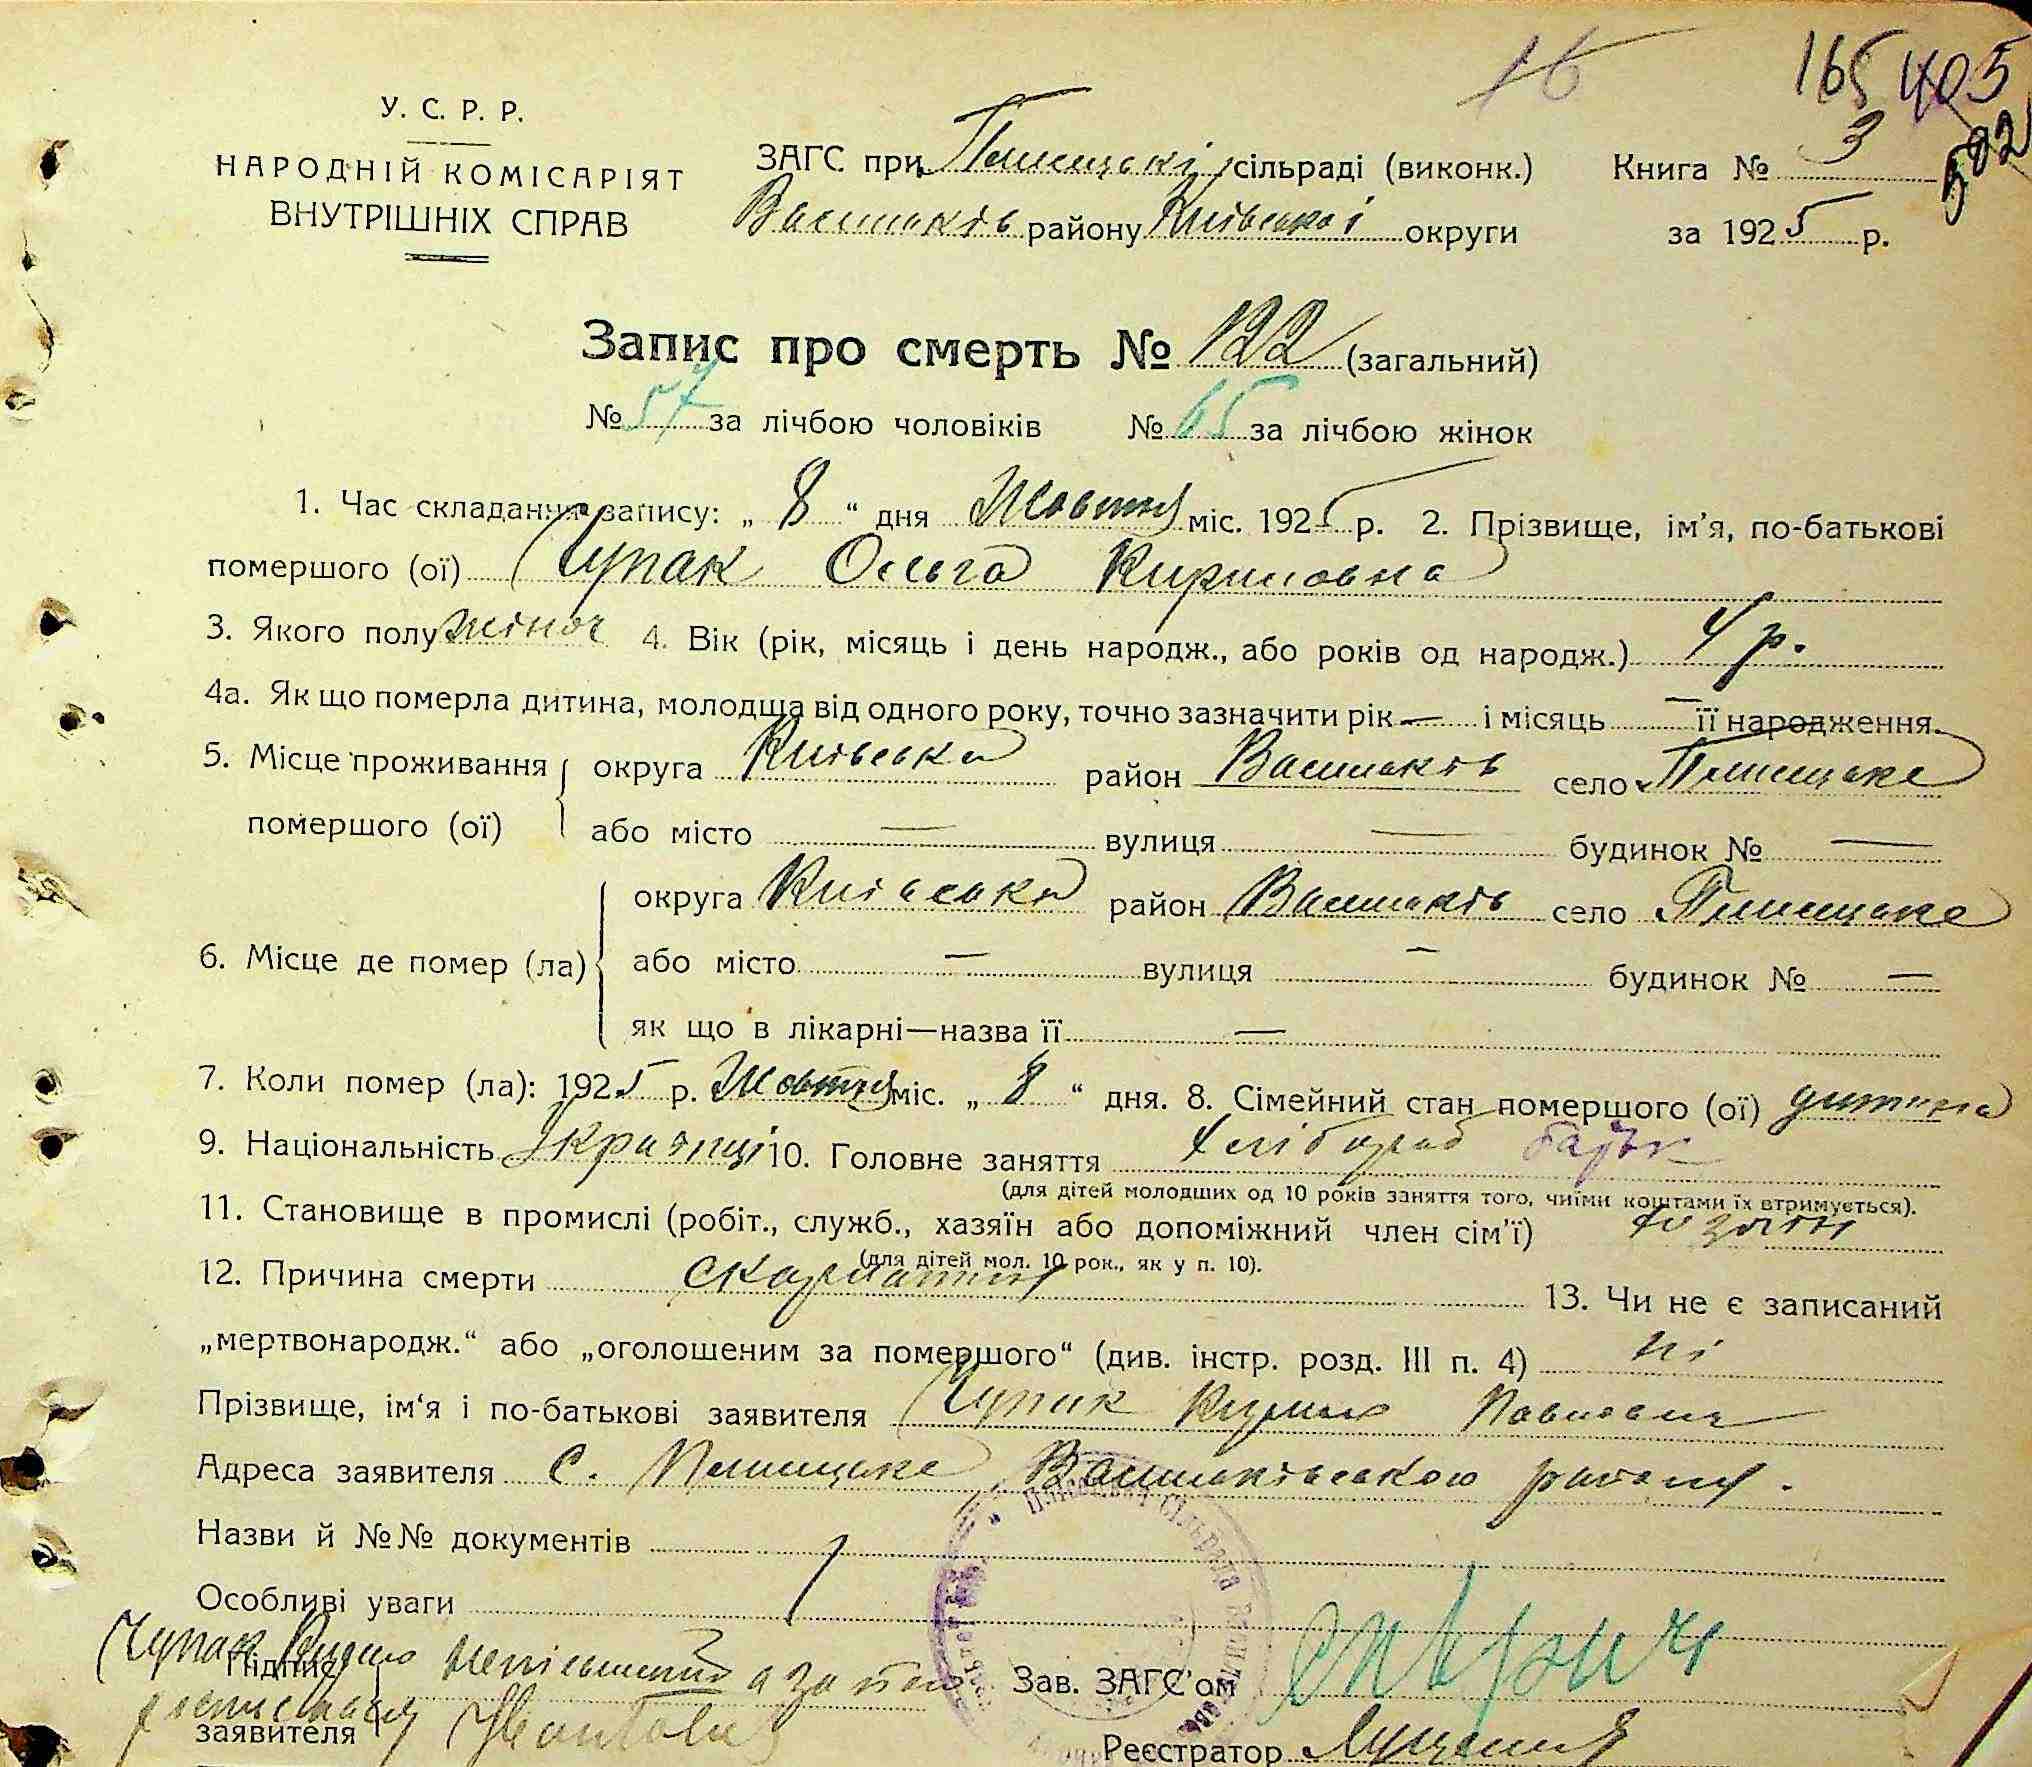 16 165 405
У. С. Р. Р. 502
НАРОДНІЙ КОМІСАРІЯТ
ВНУТРІШНІХ СПРАВ
ЗАГС при Плисецькі сільраді (виконк.) Книга № 3
Васильків району Київської округи за 1925 р.
Запис про смерть № 122 (загальний)
№ 57 за лічбою чоловіків № 65 за лічбою жінок
1. Час складання запису: „ 8 “ дня Жовтня міс. 1925 р. 2. Прізвище, ім’я, по-батькові
помершого (ої) Чупак Ольга Кириловна
3. Якого полу жіноч 4. Вік (рік, місяць і день народж., або років од народж.) 4 р.
4а. Як що померла дитина, молодша від одного року, точно зазначити рік — і місяць — її народження.
5. Місце проживання округа Київська район Васильків село Плисецьке
помершого (ої) або місто — вулиця — будинок № —
округа Київська район Васильків село Плисецьке
6. Місце де помер (ла) або місто — вулиця — будинок № —
як що в лікарні—назва її —
7. Коли помер (ла): 1925 р. Жовтня міс. „ 8 “ дня. 8. Сімейний стан помершого (ої) дитина
9. Національність Українці 10. Головне заняття хлібороб батьк
(для дітей молодших од 10 років заняття того, чиїми коштами їх втримується).
11. Становище в промислі (робіт., служб., хазяїн або допоміжний член сім’ї) хазяїн
(для дітей мол. 10 рок., як у п. 10).
12. Причина смерти скарлатина 13. Чи не є записаний
„мертвонародж.“ або „оголошеним за помершого“ (див. інстр. розд. III п. 4) ні
Прізвище, ім‘я і по-батькові заявителя Чупак Кирило Павлович
Адреса заявителя С. Плисецьке Васильківського району.
Назви й №№ документів
Особливі уваги
Чупак Кирило неписьменний а за його
Підпис Зав. ЗАГС’ом
росписався
заявителя Реєстратор